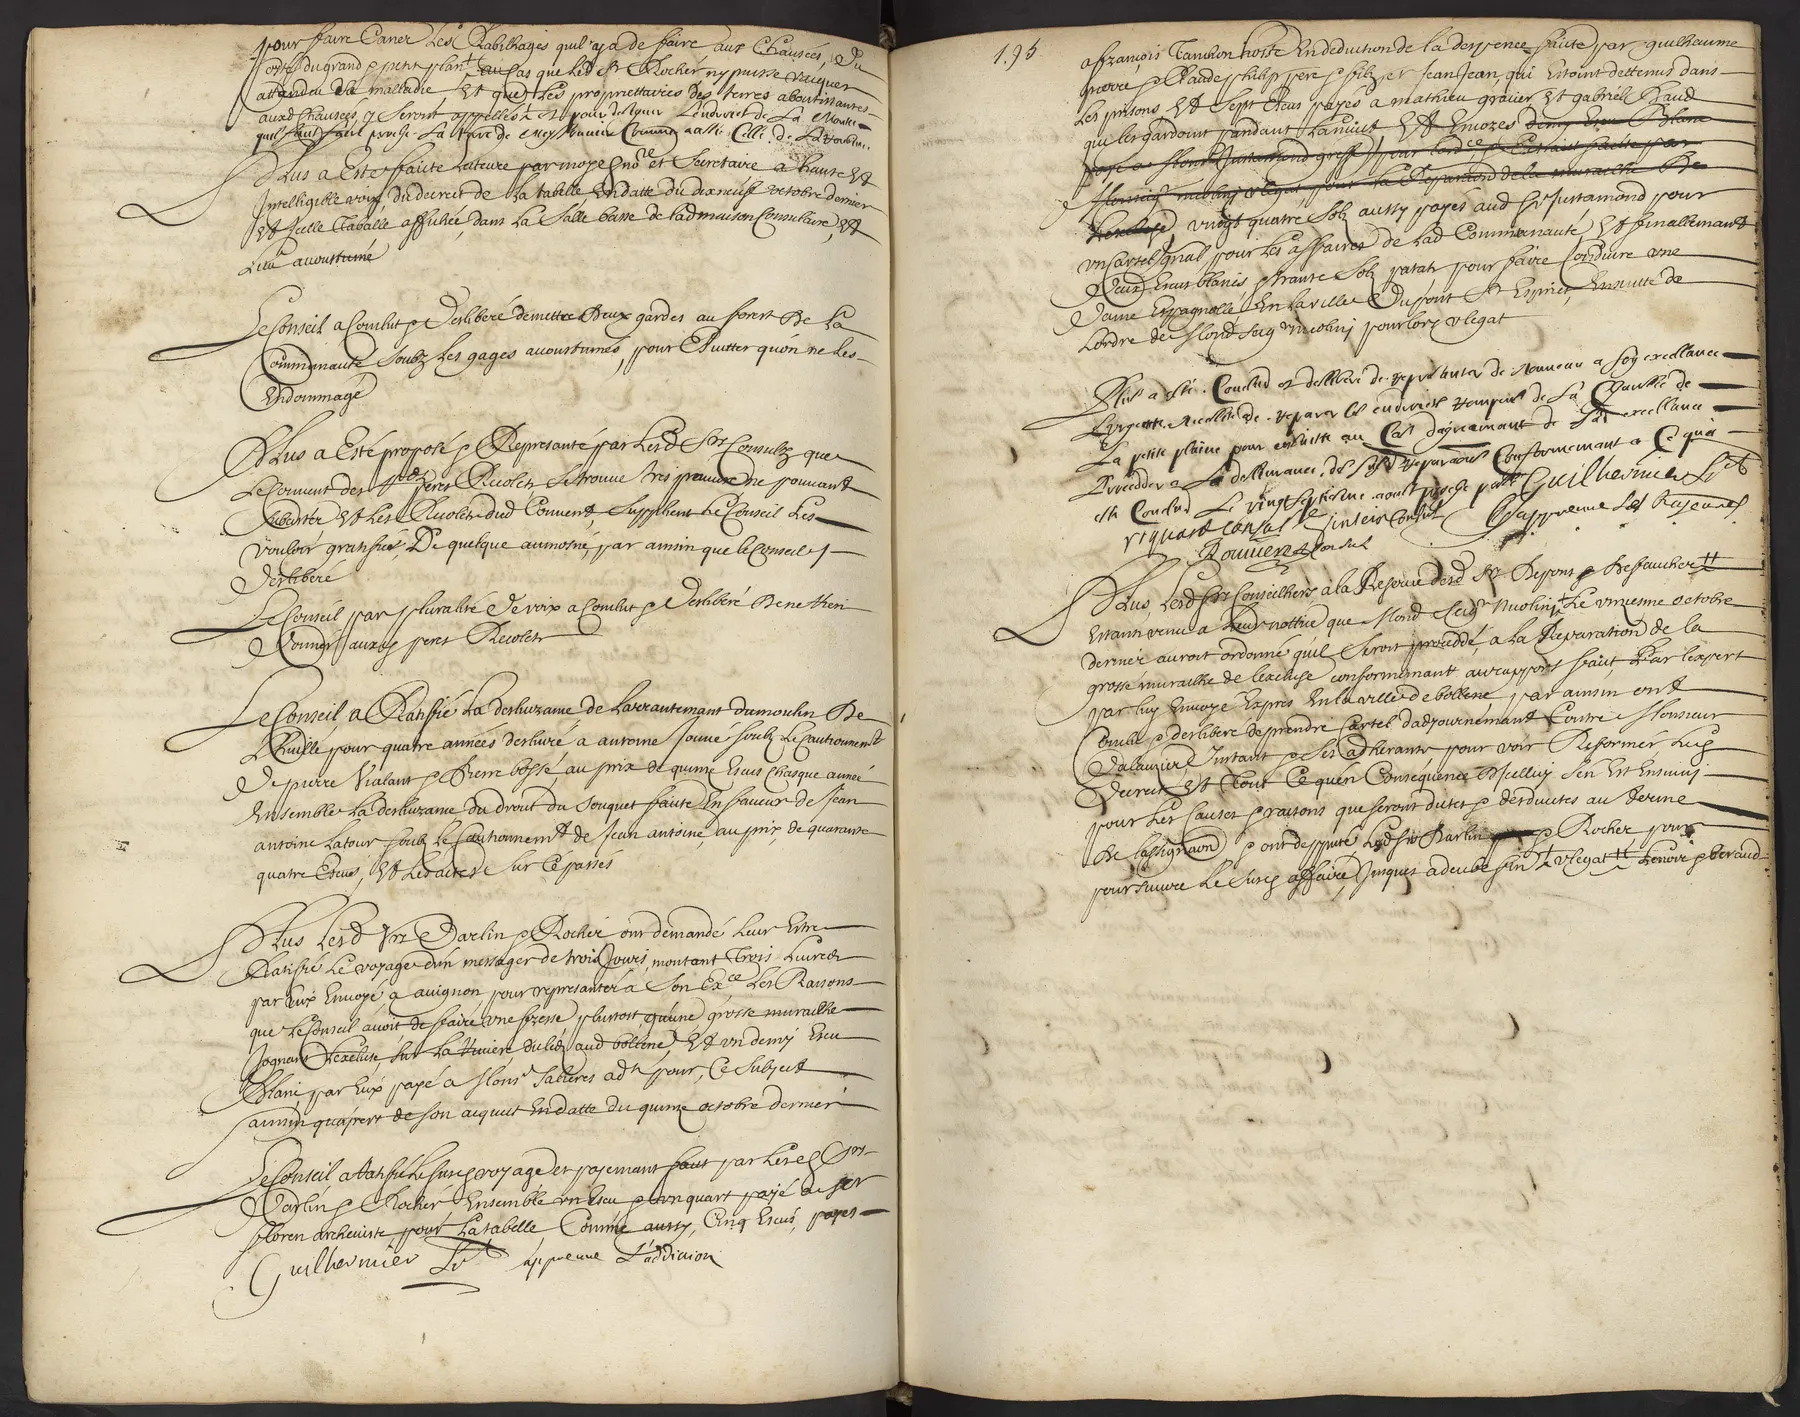 pour faire Caner Les Rabilhages quil y a de faire aux Chaucées, du
costé du grand & petit plant au cas que Led Sr Rocher ny puisse vacquer
attandu sa malladie Et que Les propriettaires des terres aboutissantes
ausd chaucées, y seront appellés
Plus a Este faite Lecture par moy e no.re et Secretaire a haute Et
Intelligible voix, du decret de La tabelle En datte du dix neufe octobre dernier
Et Icelle Taballe affichée, dans La Salle basse de lad maison Consulaire, Et
Lieu acoustumé
Le Conseil a Conclut & Desliberé de mettre Deux gardes au forest De La
Communauté Soubz Les gages acoustumés, pour Esuitter quon ne Les
Endommagé
Plus a Esté proposé & Representé par Lesd Srs Consulz que
Le Convent des pères Recoletz Se trouve tres pauvre ne pouvant
Subsister Et Les Recoletz dud Convent, Supplient Le Conseil Les
vouloir gratiffier, De quelque aumosne, par ainsin que le Conseil y
Desliberé
Le Conseil par pluralité De voix a Conclut & Desliberé De ne Rien
Donner auxsd peres Recoletz
Le Conseil a Ratiffié La desliurance de Larrantement du moulin De
Lhuille pour quatre années desliuré a antoine Joune soubz Le Cautionnem.t
De pierre Vialans & Pierre bossé au prix de quinze Escus Chasque année
Ensemble La desliurance du droit du Souquet faite En faueur de Jean
antoine Latour soubz Le Cautionnem.t de Jean antoine, au prix, de quarante
quatre Escus, Et Les actes Sur Ce passés
Plus Lesd Srs Darlin & Rocher ont demandé Leur Estre
Ratiffié Le voyage d'un messager de trois Jours, montant Trois Liures
par Eux Envoyé a avignon pour representer a Son Ex.ce Les Raisons
que Le Conseil avoit de faire une fresse plustost qu'une grosse muraille
Joignant L'excluse, Sur La Riviere du lez aud bollene, Et un demy Escu
Blanc par Eux payé a Mons.r Salieres ad.t pour, Ce Subject
ainsin quapert de son acquit En datte du quinze octobre dernier
Le Conseil a Ratiffié Le susd voyage et payemant faits par Lesd Srs
Darlin & Rocher Ensemble un Escu & un quart payé a Sr
floren archeuiste, pour La tabelle, Comme aussy, Cinq Escus, payes
Guilhermier Lt approuue L'addition
195
a françois Tambon hoste En deduction de la despence faite par guilheaume
& Claude philip pere & filz et Jean Jean, qui Estoint dettenus dans
Les prisons Et Sept Escus payés a mathieu gravier Et gabriel Baud
qui les gardoint pandant La nuict Et
vingt quatre Solz aussy payés aud Sr Justamond pour
un Cartel gnal pour Les affaires de Lad Communauté Et finallemant
Deux Escus blancs & trante Solz patatz pour faire Conduire une
Dame Espagnolle, En la ville Du pont St Esprict, En suitte de
Lordre de Mond Seigr nicolinj pour lors vlegat
Plus a esté Conclud et delliberé de representer de Nouveau a Son excellance
L'urgente necessité de reparer les endroits rompeus de La Chaussée de
La petite plaine pour ensuitte au Cas d'agreemant de Sad excellance
Proceder a La dellivrance des susd reparaons Conformemant a Ce qui a
esté Conclud Le vingt septiesme aoust proche passé Guilhermier Lt
riquard Consul Sinteir Consul Japprouue Les Rajeures
Rouviere Consul
Plus, Lesd Srs Conseilhers a La Reserue desd Srs Ripons & Desfauchier ++
Estant venu a Leur nottice que Mond Seigr nicolinj + Le vniesme octobre
dernier auroit ordonné quil Seroit proceddé, a La Reparation de la
grosse muraille de Lexcluse conformemant au rapport fait, Par lexpert
par luy Envoyé Expres En la ville de bollene par ainsin ont
Conclu & desliberé de prendre Cartel d'adjournémant Contre Monsieur
Dalauzier Jnstant & Ses adherants, pour voir Reformer Led
Decret Et Tout Ce quen Consequence Dicelluy Sen Est Ensuivj
pour Les Causes & raisons que seront dittes & desduittes au terme
De Lassignaon & ont depputé Led Sr Darlin & Rocher pour
poursuivre Le Susd affaire Jusques a deube fin + vlegat ++ Lenoir & beraud